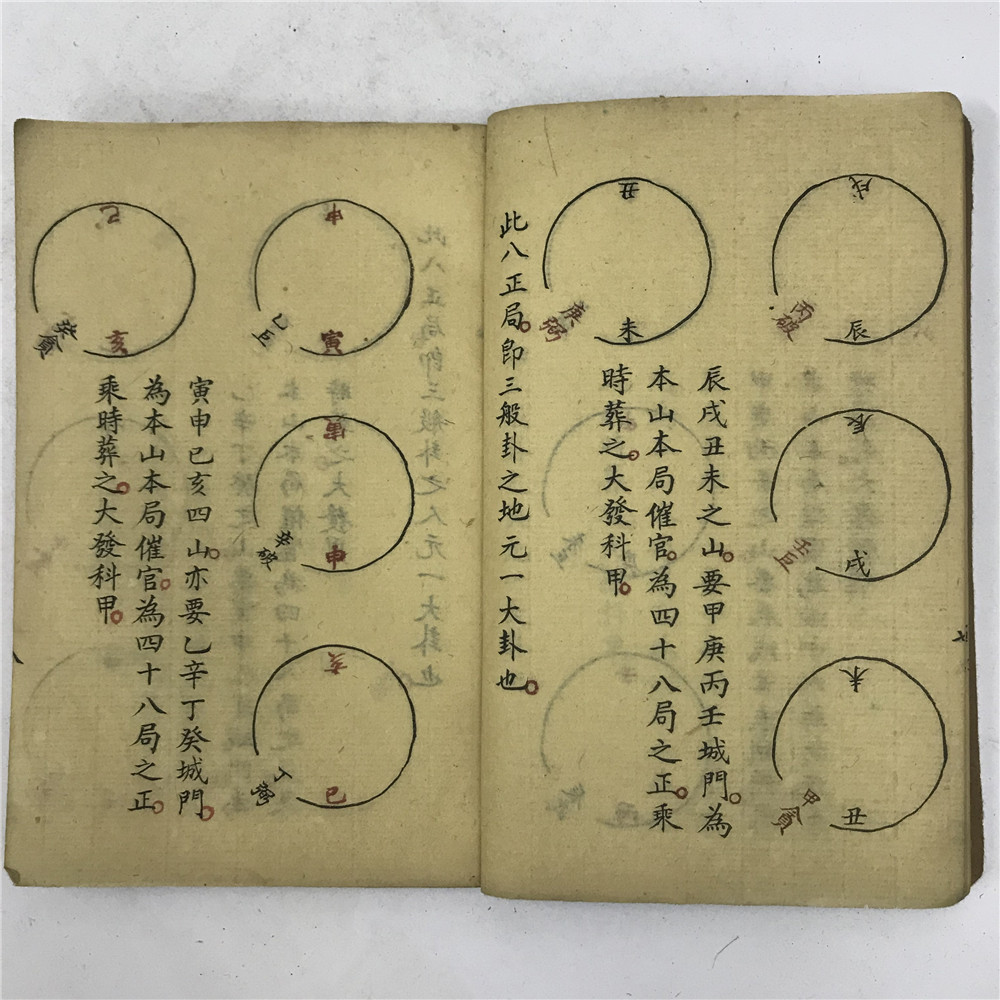 戌
丙破
辰
辰
壬巨
戌
未
甲貪
丑
辰戌丑未之山。要甲庚丙壬城門。為
本山本局催官。為四十八局之正。乘
時葬之。大發科甲。
丑
庚弼
未
此八正局。即三般卦之地元一大卦也。
申
乙巨
寅
寅
辛破
申
亥
丁
巳
寅申巳亥四山。亦要乙辛丁癸城門。
為本山本局催官。為四十八局之正。
乘時葬之。大發科甲。
巳
癸貪
亥